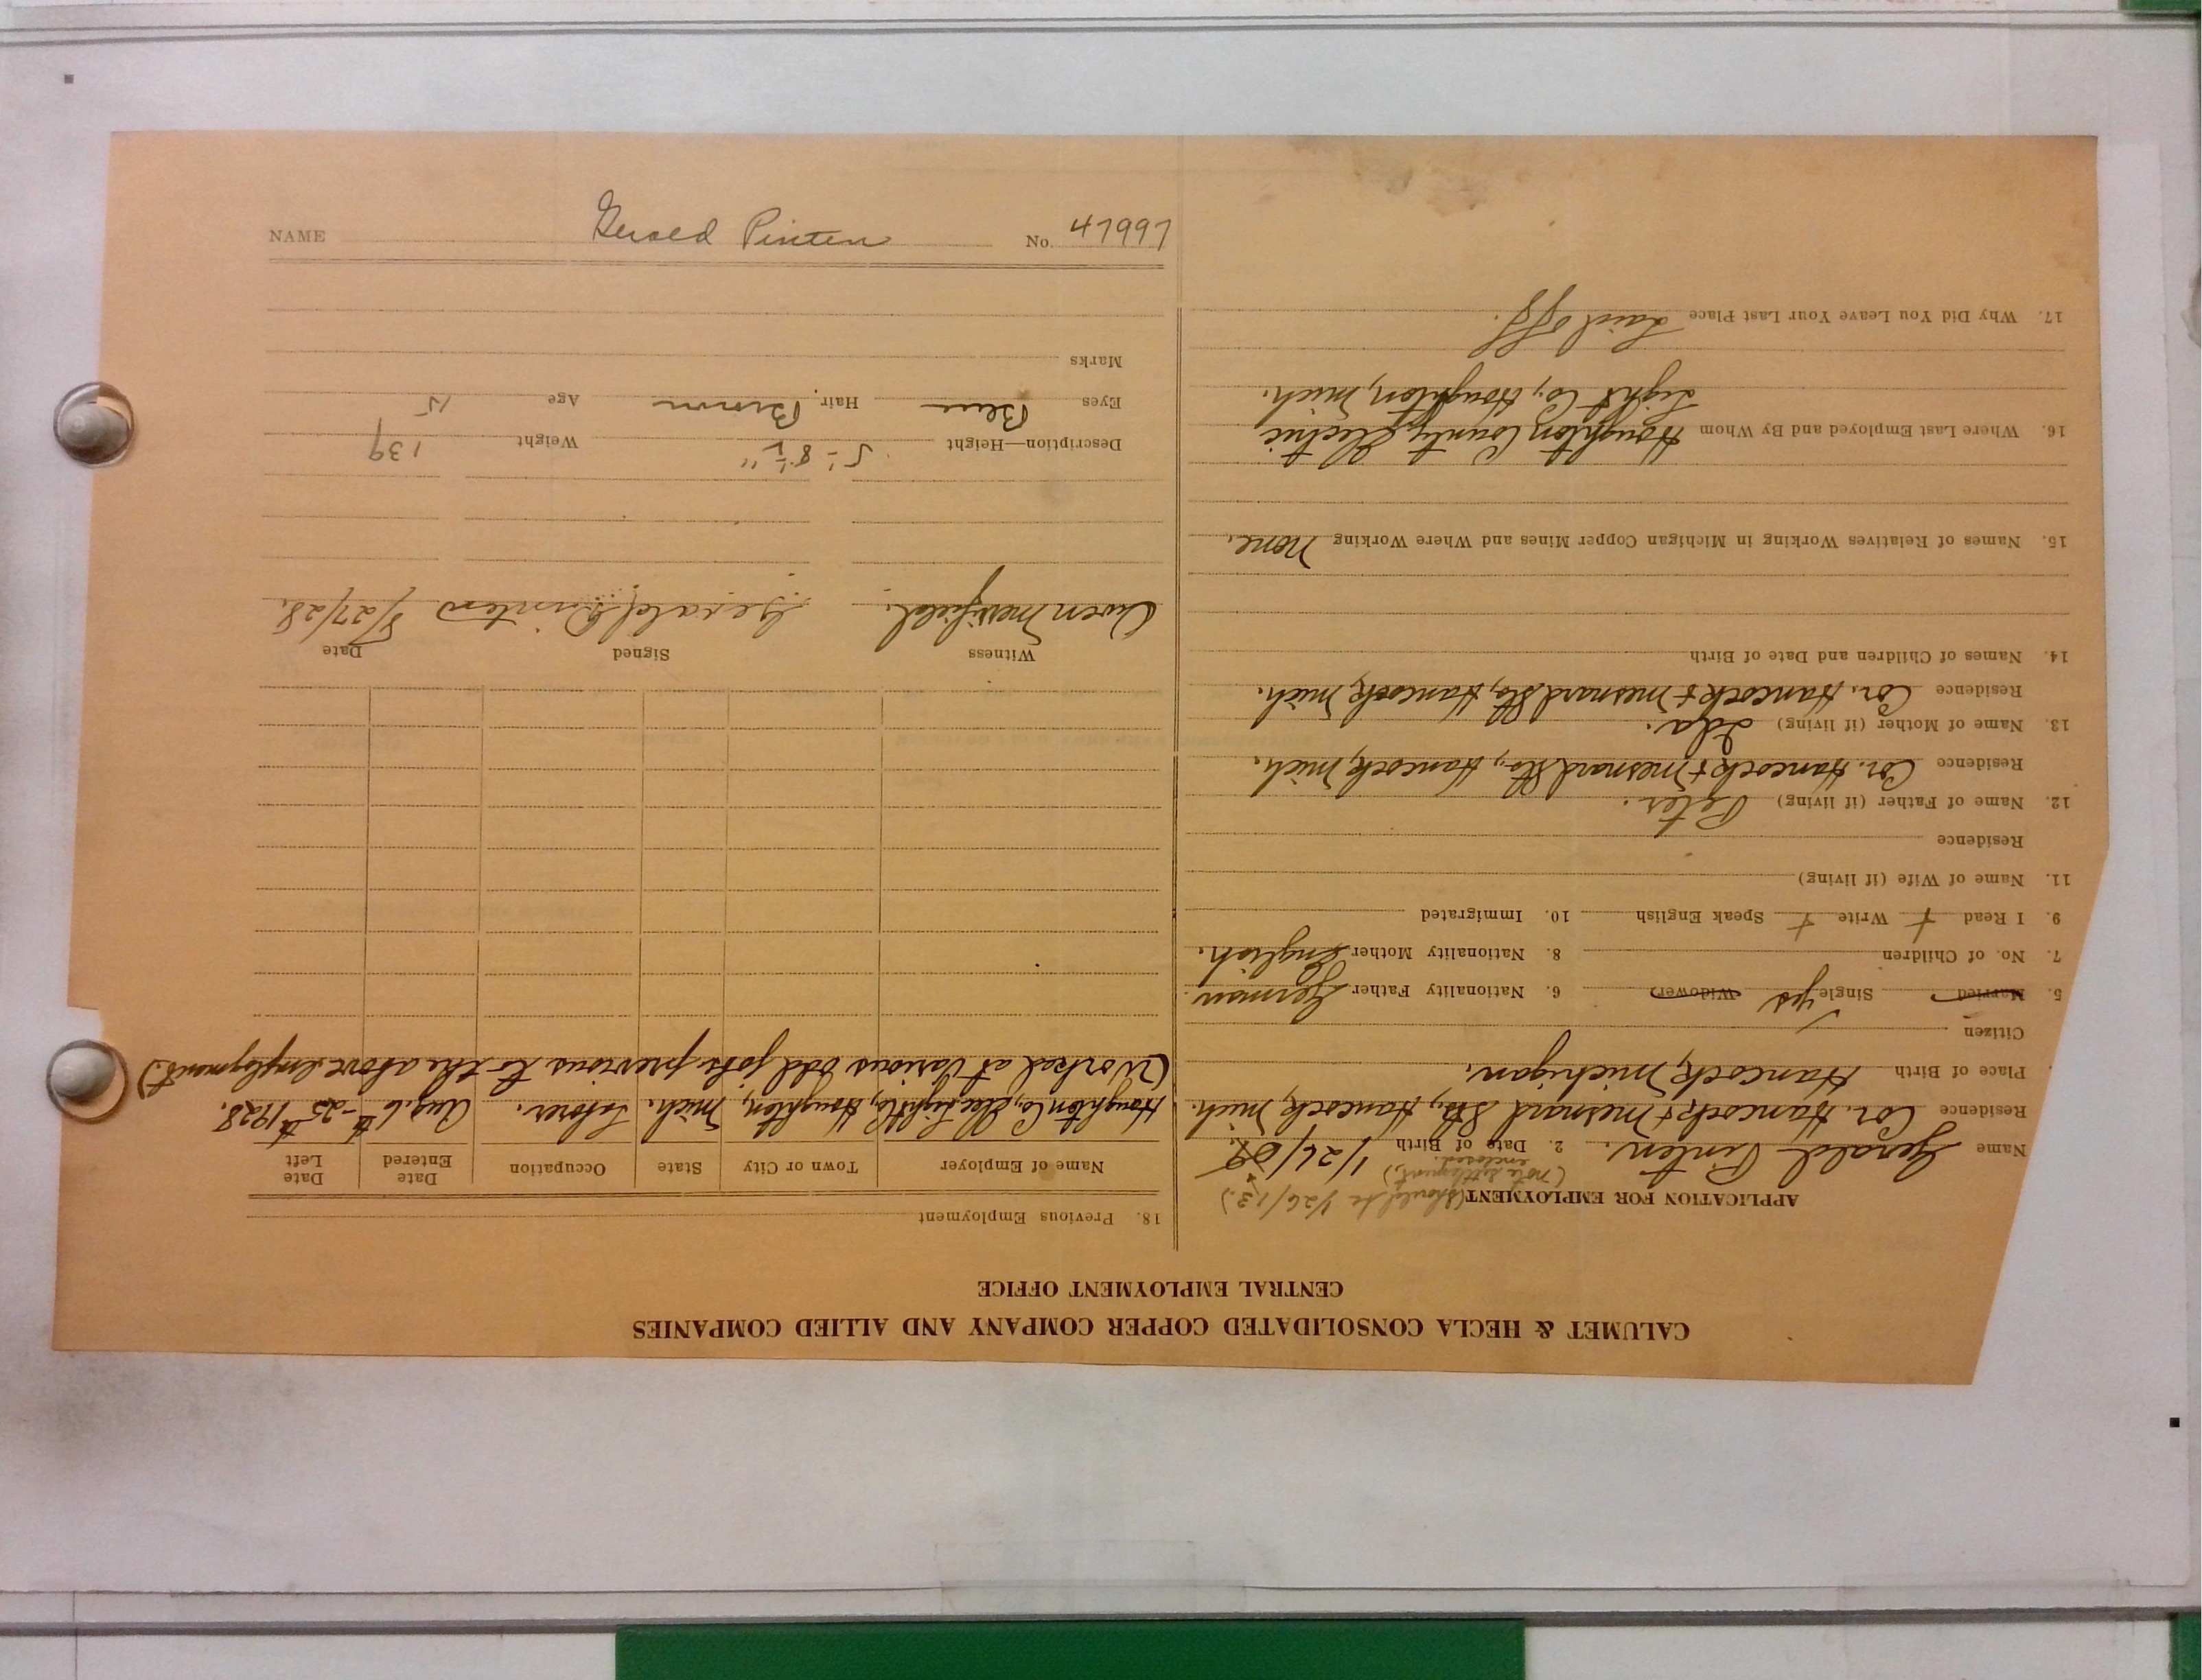 CALUMET & HECLA CONSOLIDATED COPPER COMPANY AND ALLIED COMPANIES
CENTRAL EMPLOYMENT OFFICE
APPLICATION FOR EMPLOYMENT (should be 1/26/13.)
(note settlement,)
enclosed.
Name Gerald Pinten. 2. Date of Birth 1/26/
Residence Cor. Hancock & Mesnard Sts., Hancock, Mich.
Place of Birth Hancock, Michigan.
Citizen ✓
5. Married Single yes Widower 6. Nationality Father German
7. No. of Children 8. Nationality Mother English.
9. I Read + Write + Speak English 10. Immigrated
11. Name of Wife (if living)
Residence
12. Name of Father (if living) Peter.
Residence Cor. Hancock & Mesnard Sts., Hancock, Mich.
13. Name of Mother (if living) Ida.
Residence Cor. Hancock & Mesnard Sts, Hancock, Mich.
14. Names of Children and Date of Birth
15. Names of Relatives Working in Michigan Copper Mines and Where Working None.
16. Where Last Employed and By Whom Houghton County Electric
Light Co., Houghton, Mich.
17. Why Did You Leave Your Last Place Laid off.
18. Previous Employment
Name of Employer Town or City State Occupation Date Entered Date Left
Houghton Co., Elec. Light Co, Houghton, Mich. Laborer. Aug. 6th - 25th 1928.
(Worked at various odd jobs previous to the above employment.)
Witness Signed Date
Owen Merrifield. Gerald Pinten 8/27/28.
Description—Height 5'- 8½" Weight 139
Eyes Blue Hair Brown Age 15
Marks
NAME Gerald Pinten No. 47997